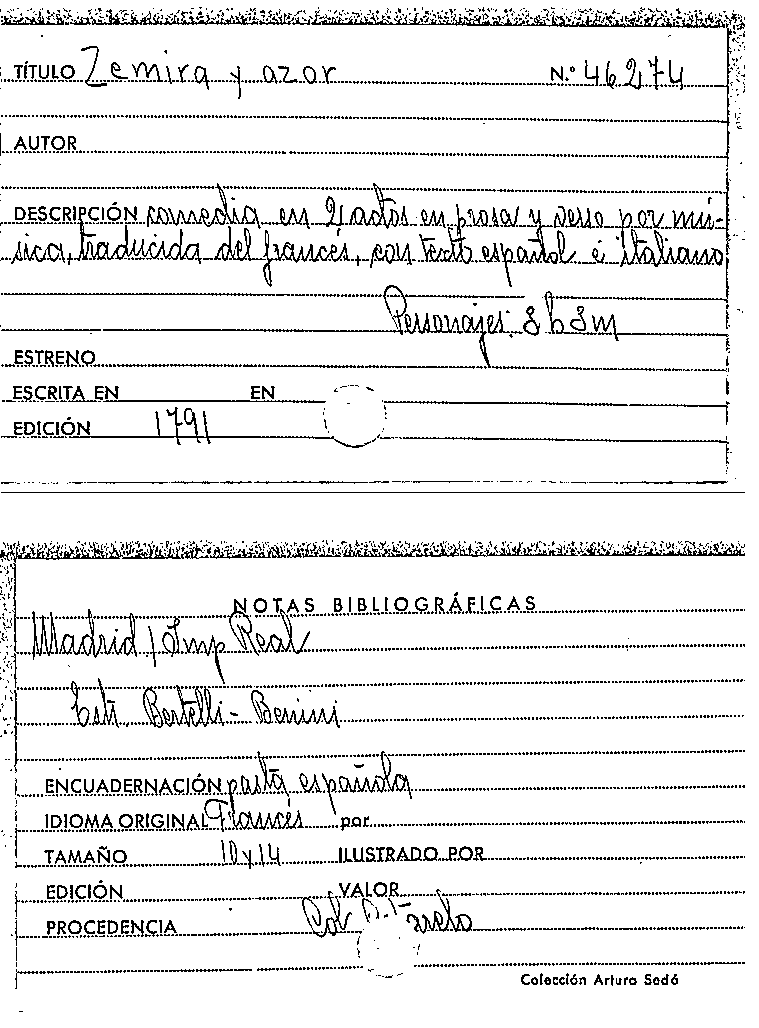 TÍTULO Zemira y azor N.º 46274
AUTOR
DESCRIPCIÓN comedia en 2 actos en prosa y verso por mú-
sica, traducida del francés, con texto español é italiano
Personajes: 8 h 3 m
ESTRENO
ESCRITA EN EN
EDICIÓN 1791
NOTAS BIBLIOGRÁFICAS
Madrid / Imp Real
Estr. Bertelli - Benini
ENCUADERNACIÓN pasta española
IDIOMA ORIGINAL Francés por
TAMAÑO 10 x 14 ILUSTRADO POR
EDICIÓN VALOR
PROCEDENCIA Col.
Colección Arturo Sedó